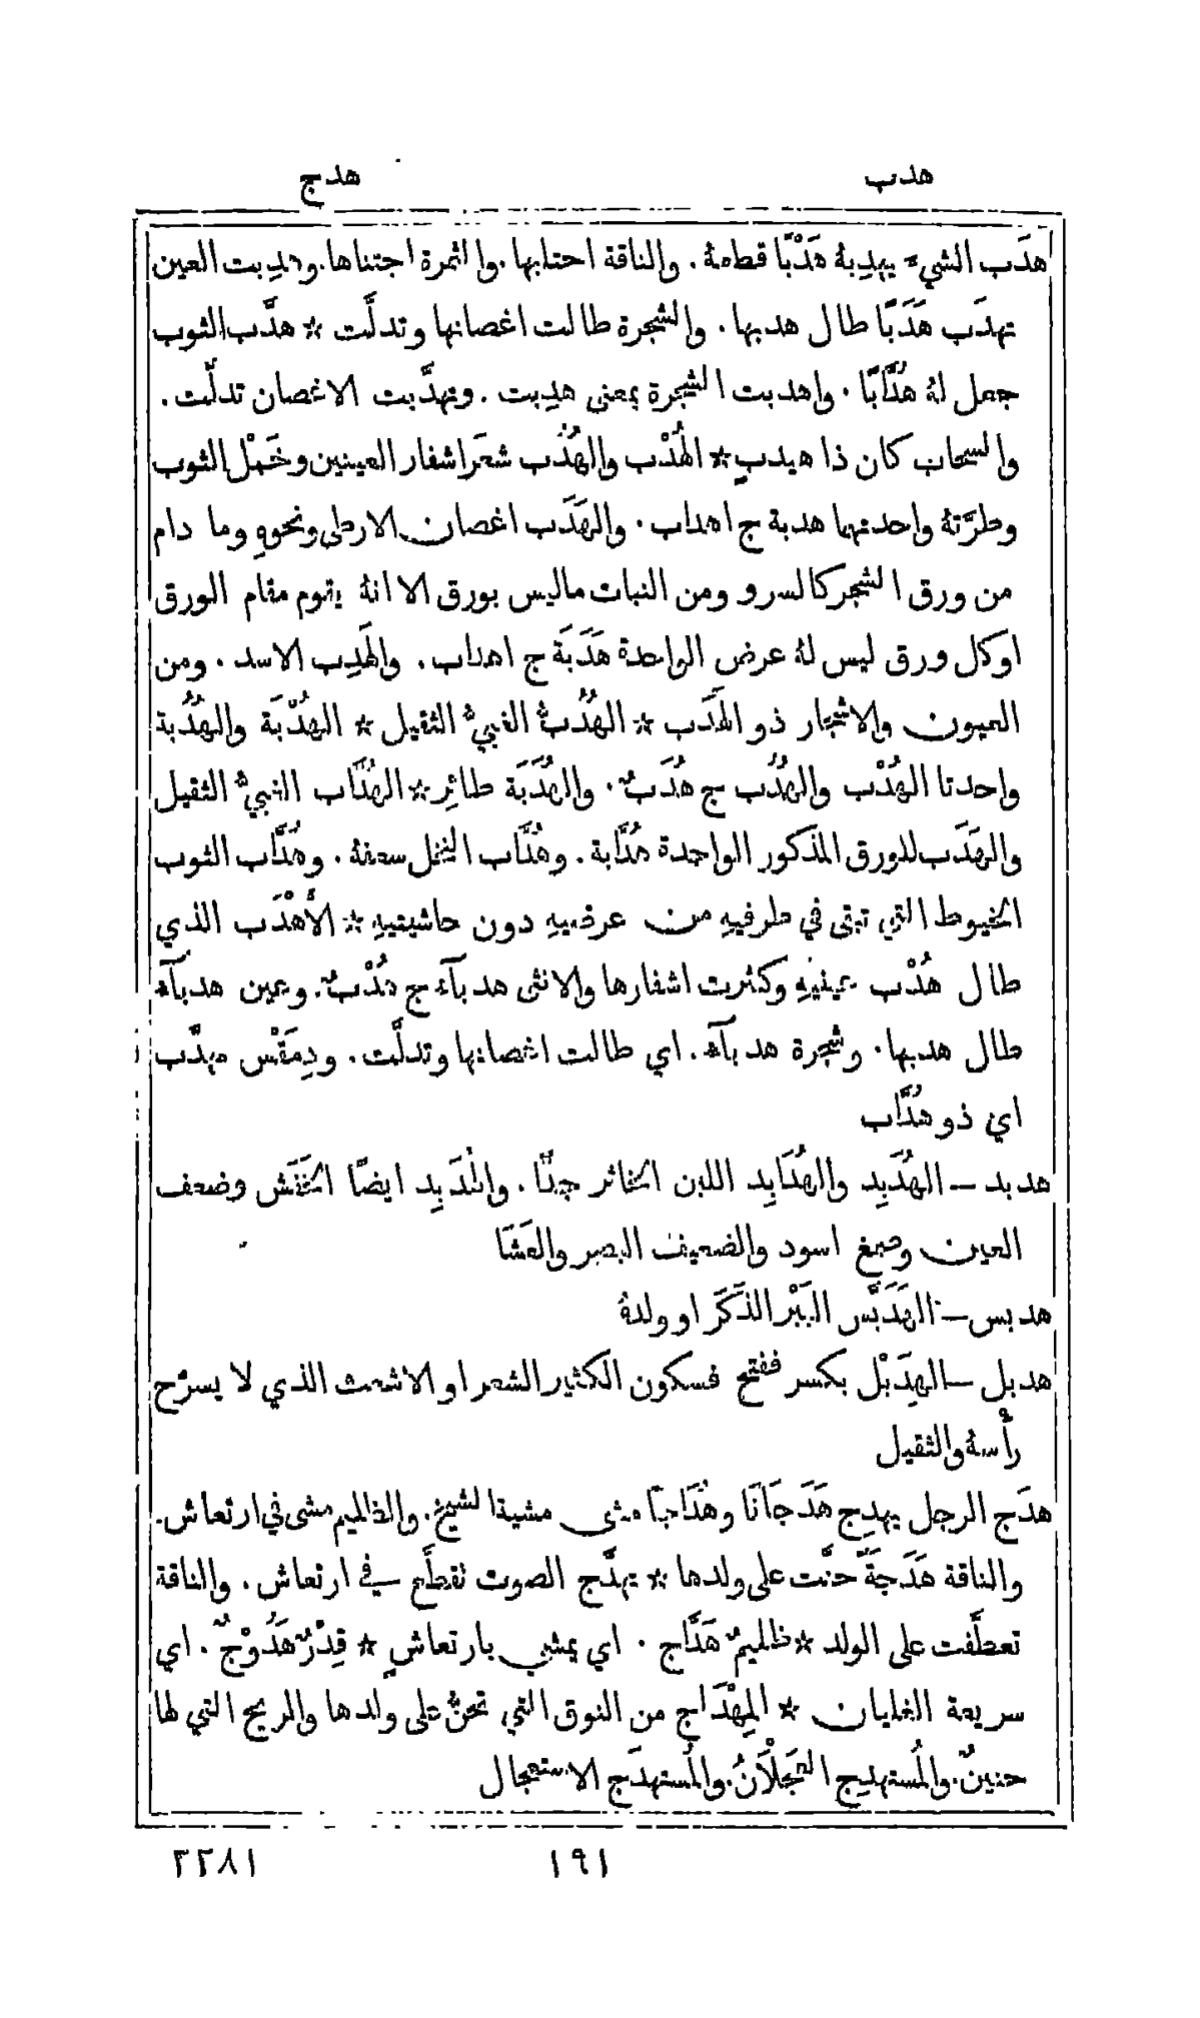 هدب
هدج
هدَب الشيء يهدِبهُ هَدْبًا قطعهُ . والناقة احتلبها . والثمرة اجتناها . وهدِبت العين
تهدَب هَدَبًا طال هدبها . والشجرة طالت اغصانها وتدلَّت * هدَّب الثوب
جعل لهُ هُدَّابًا . واهدبت الشجرة بمعنى هدِبت . وتهدَّبت الاغصان تدلَّت .
والسحاب كان ذا هيدبٍ * الهُدْب والهُدُب شعَر اشفار العينين وخَمْل الثوب
وطرَّتهُ واحدتهما هدبة ج اهداب . والهَدَب اغصان الارطى ونحوهِ وما دام
من ورق الشجر كالسرو ومن النبات ما ليس بورق الا انهُ يقوم مقام الورق
او كل ورق ليس لهُ عرض الواحدة هَدَبَة ج اهداب . والهَدِب الاسد . ومن
العيون والاشجار ذو الهَدَب * الهُدُبُّ الغبيُّ الثقيل * الهُدْبَة والهُدُبة
واحدتا الهُدْب والهُدُب ج هُدَبٌ . والهُدَبَة طائِر * الهُدَّاب الغبيُّ الثقيل
والهَدَب للورق المذكور الواحدة هُدَّابة . وهُدَّاب النخل سعفهُ . وهُدَّاب الثوب
الخيوط التي تبقى في طرفيهِ من عرضيهِ دون حاشيتيهِ * الأَهْدَب الذي
طال هُدْب عينيهِ وكثرت اشفارها والانثى هدبآء ج هُدْبٌ . وعين هدبآء
طال هدبها . وشجرة هدبآء . اي طالت اغصانها وتدلَّت . ودِمَقْس مهدَّب
اي ذو هُدَّاب
هدبد – الهُدَبِد والهُدَابِد اللبن الخاثر جدًّا . والهُدَبِد ايضًا الخَفَش وضعف
العين وصمغ اسود والضعيف البصر والعَشَا
هدبس – الهَدَبَّس البَبْر الذَّكَر او ولدهُ
هدبل – الهِدَبْل بكسر ففتح فسكون الكثير الشعر او الاشعث الذي لا يسرّح
رأسهُ والثقيل
هدَج الرجل يهدِج هَدَجَانًا وهُدَاجًا مشى مشية الشيخ . والظليم مشى في ارتعاش .
والناقة هَدَجَةً حنَّت على ولدها * تهدَّج الصوت تقطَّع في ارتعاش . والناقة
تعطَّفت على الولد * ظليمٌ هَدَّاج . اي يمشي بارتعاشٍ * قِدْرٌ هَدُوْجٌ . اي
سريعة الغليان * المِهْدَاج من النوق التي تحنُّ على ولدها والريح التي لها
حنينٌ . والمُستهدِج العَجْلَانُ . والمُستهدَج الاستعجال
١٩١
٢٢٨١